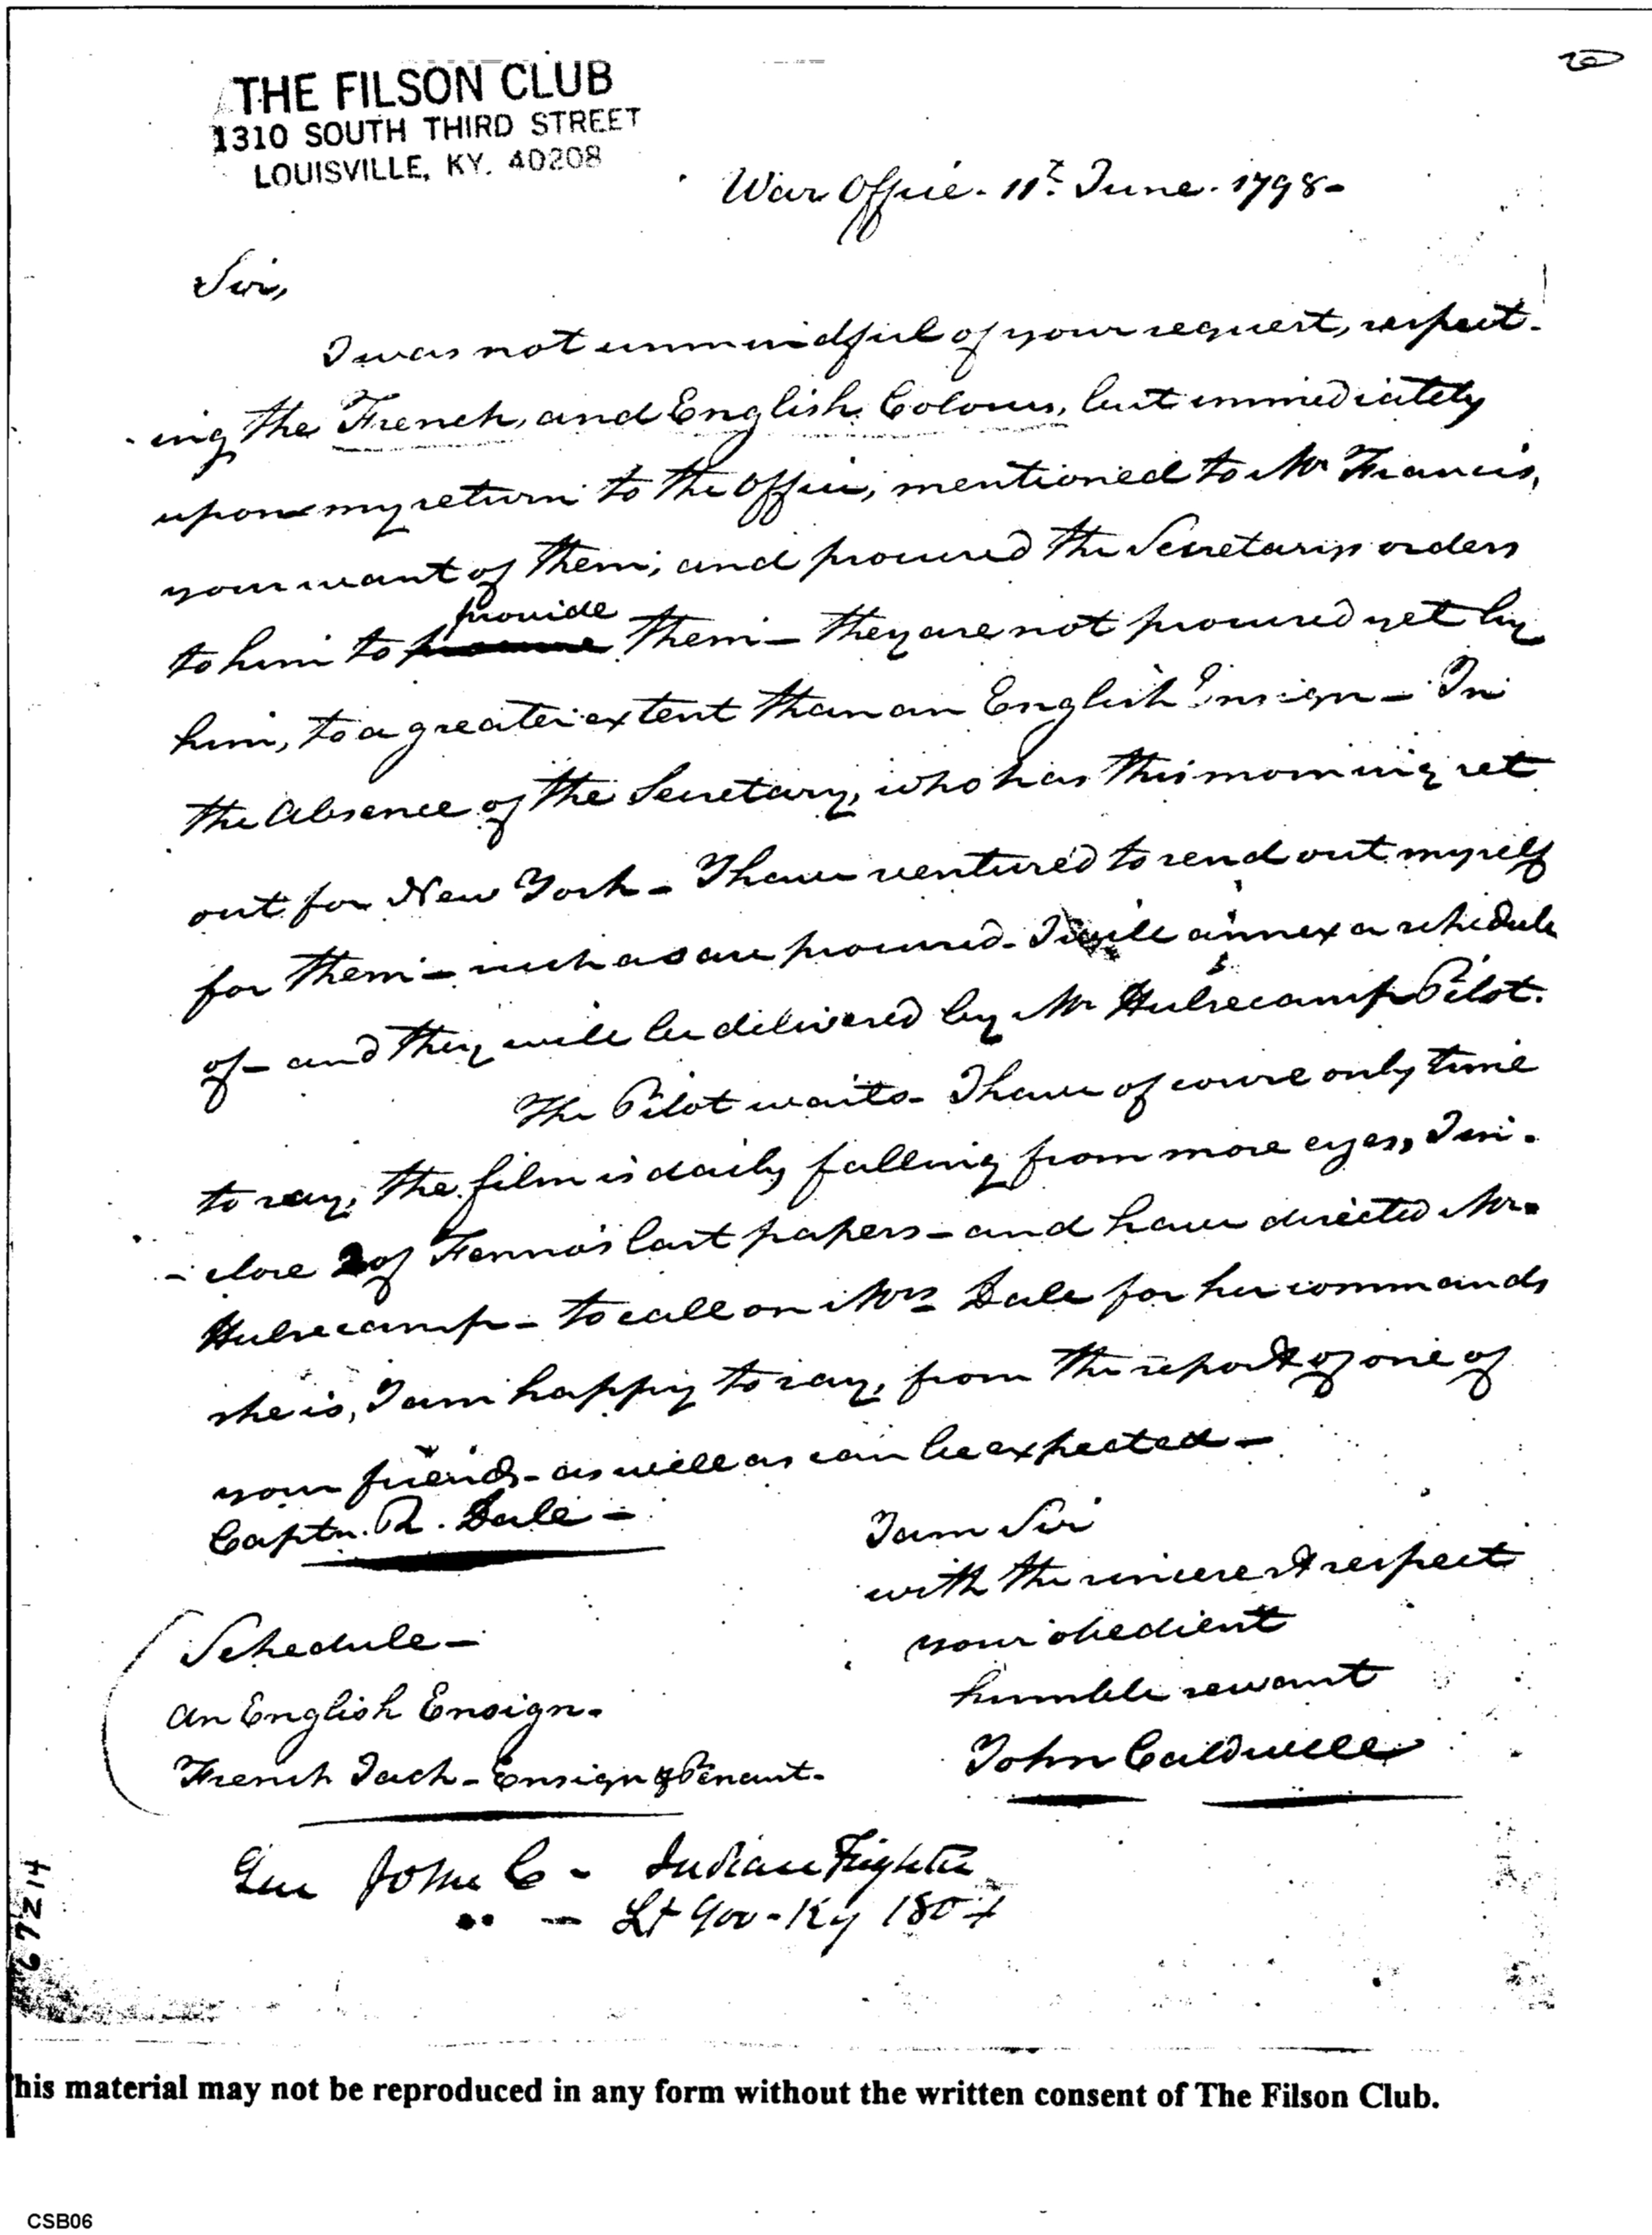 THE FILSON CLUB
1310 SOUTH THIRD STREET
LOUISVILLE, KY. 40208
War Office. 11t. June. 1798-
Sir,
I was not unmindful of your request, respect-
-ing the French, and English Colours, but immediately
upon my return to the Office, mentioned to Mr Francis,
your want of them; and procured the Secretarys orders
provide
to him to procure them - they are not procured yet by
him, to a greater extent than an English Ensign - In
the Absence of the Secretary, who has this morning set
out for New York - I have ventured to send out myself
for them - such as are procured - I will annex a schedule
of - and they will be delivered by Mr Hulsecamp Pilot.
The Pilot waits - I have of course only time
to say, the film is daily falling from more eyes, I in-
-close 2 of Fenno's last papers - and have directed Mr.
Hulsecamp - to call on Mrs Dale for her commands
she is, I am happy to say, from the report of one of
your friends - as well as can be expected -
Captn. R. Dale -
I am Sir
with the sincerest respect
your obedient
humble servant
John Caldwell
Schedule -
An English Ensign.
French Jack - Ensign & Penant.
Gen John C - Indian Fighter
" - Lt Gov - Ky 1804
67214
his material may not be reproduced in any form without the written consent of The Filson Club.
CSB06